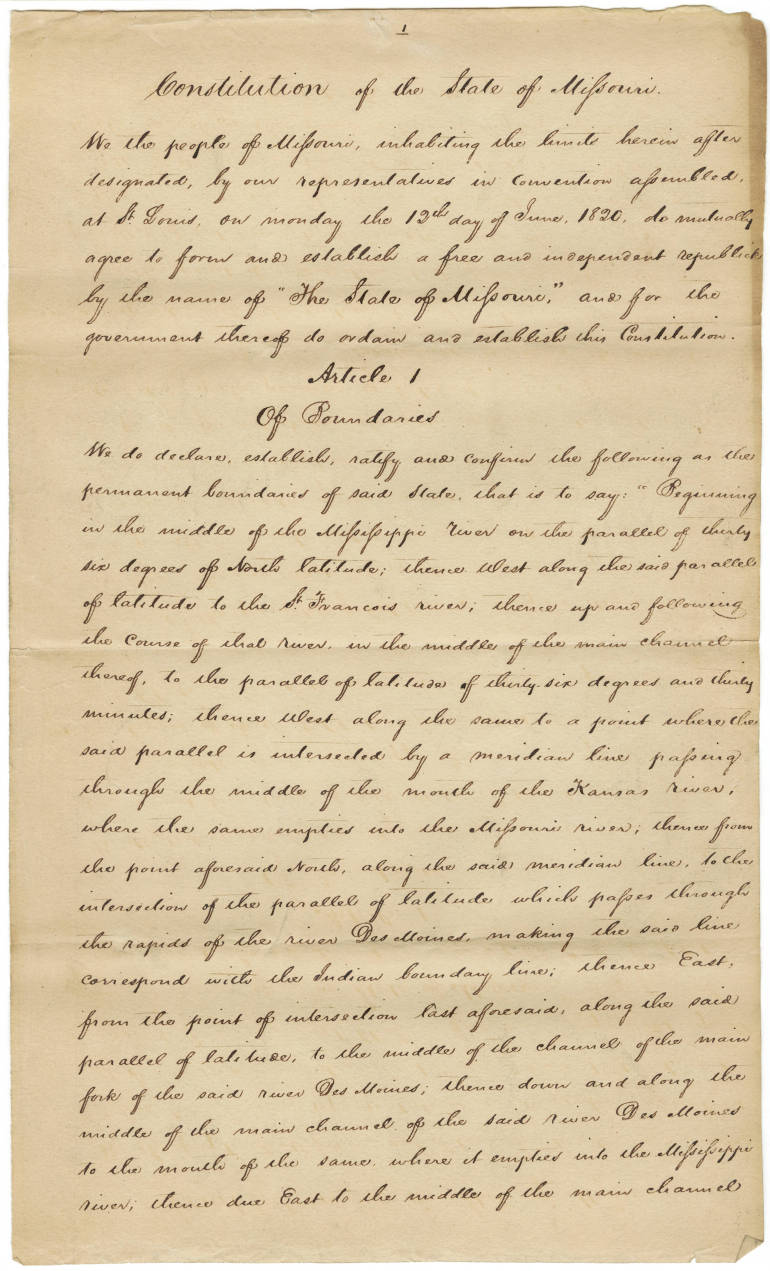 1
Constitution of the State of Missouri.
We the people of Missouri, inhabiting the limits herein after
designated, by our representatives in convention assembled,
at St. Louis, on monday the 12th day of June, 1820, do mutually
agree to form and establish a free and independent republick
by the name of "The State of Missouri," and for the
government thereof do ordain and establish this Constitution.
Article 1
Of Boundaries
We do declare, establish, ratify and confirm the following as the
permanent boundaries of said State, that is to say: "Beginning
in the middle of the Mississippi river on the parallel of thirty
six degrees of North latitude; thence West along the said parallel
of latitude to the St. Francois river; thence up and following
the course of that river, in the middle of the main channel
thereof, to the parallel of latitude of thirty-six degrees and thirty
minutes; thence West along the same to a point where the
said parallel is intersected by a meridian line passing
through the middle of the mouth of the Kansas river,
where the same empties into the Missouri river; thence from
the point aforesaid North, along the said meridian line, to the
intersection of the parallel of latitude which passes through
the rapids of the river Des Moines, making the said line
correspond with the Indian boundary line; thence East,
from the point of intersection last aforesaid, along the said
parallel of latitude, to the middle of the channel of the main
fork of the said river Des Moines; thence down and along the
middle of the main channel of the said river Des Moines
to the mouth of the same, where it empties into the Mississippi
river; thence due East to the middle of the main channel